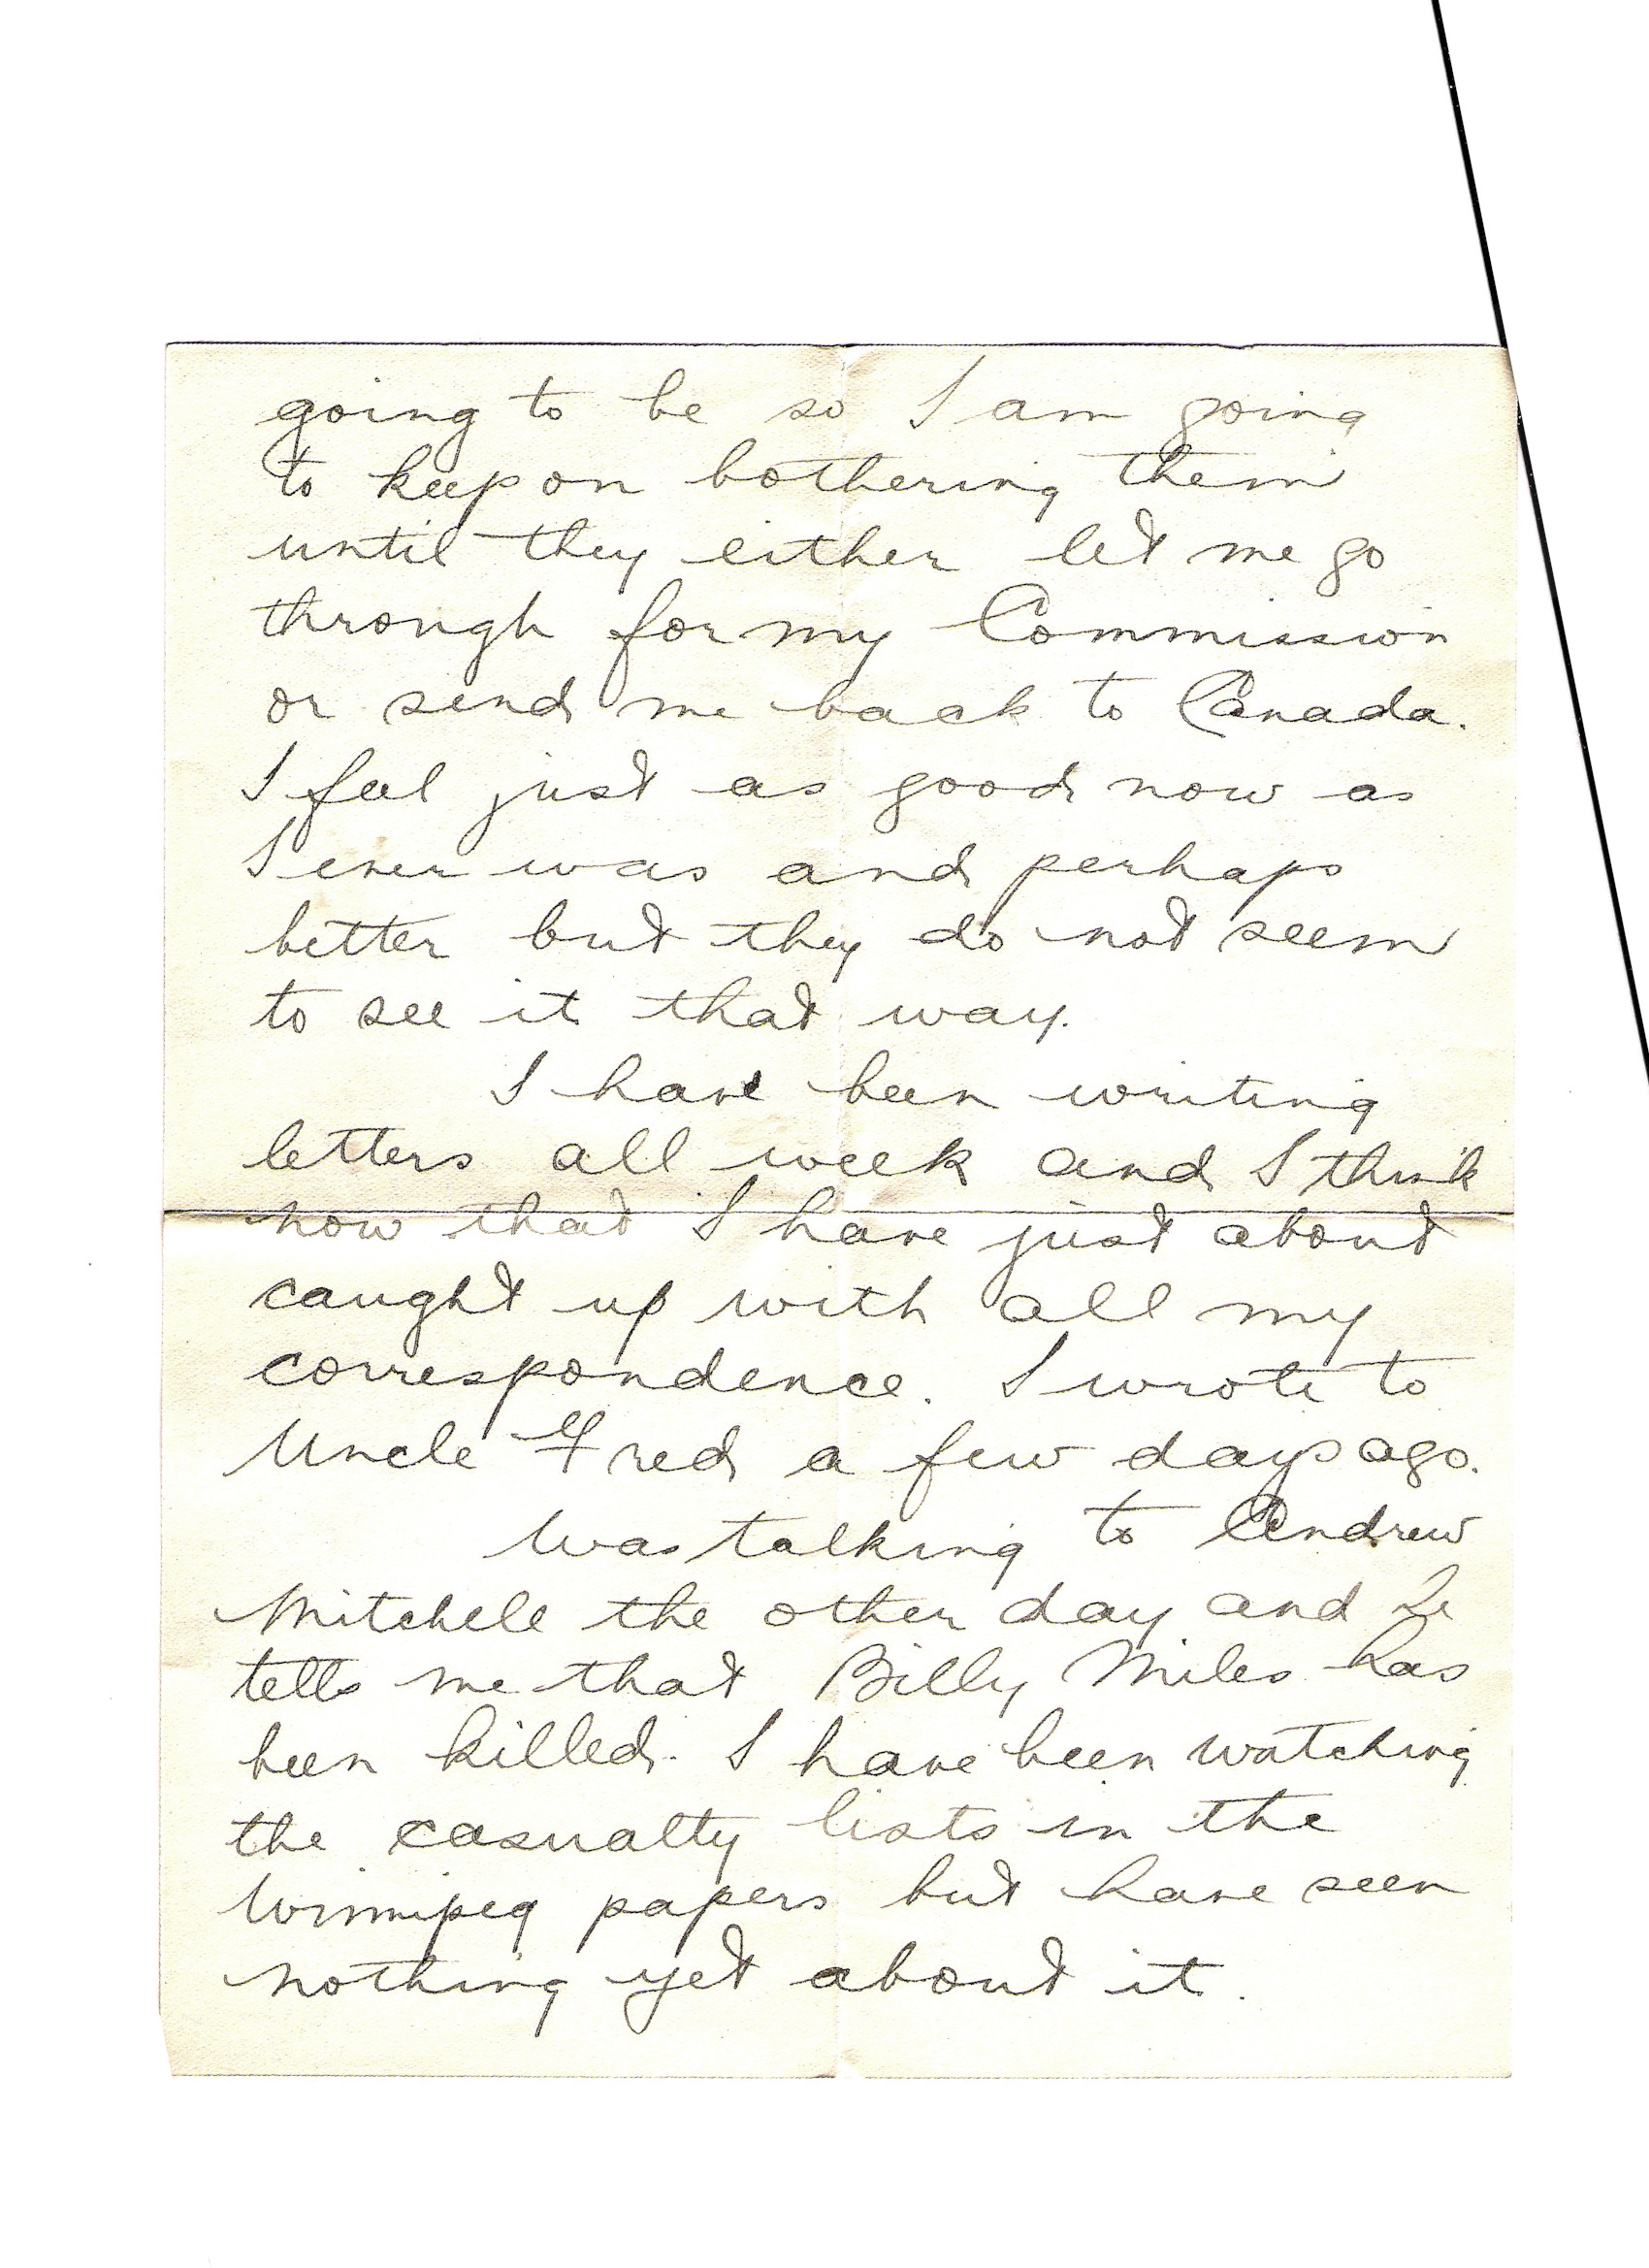 going to be so I am going
to keep on bothering them
until they either let me go
through for my Commission
or send me back to Canada.
I feel just as good now as
I ever was and perhaps
better but they do not seem
to see it that way.
I have been writing
letters all week and I think
now that I have just about
caught up with all my
correspondence. I wrote to
Uncle Fred a few days ago.
Was talking to Andrew
Mitchell the other day and he
tells me that Billy Miles has
been killed. I have been watching
the casualty lists in the
Winnipeg papers but have seen
nothing yet about it.